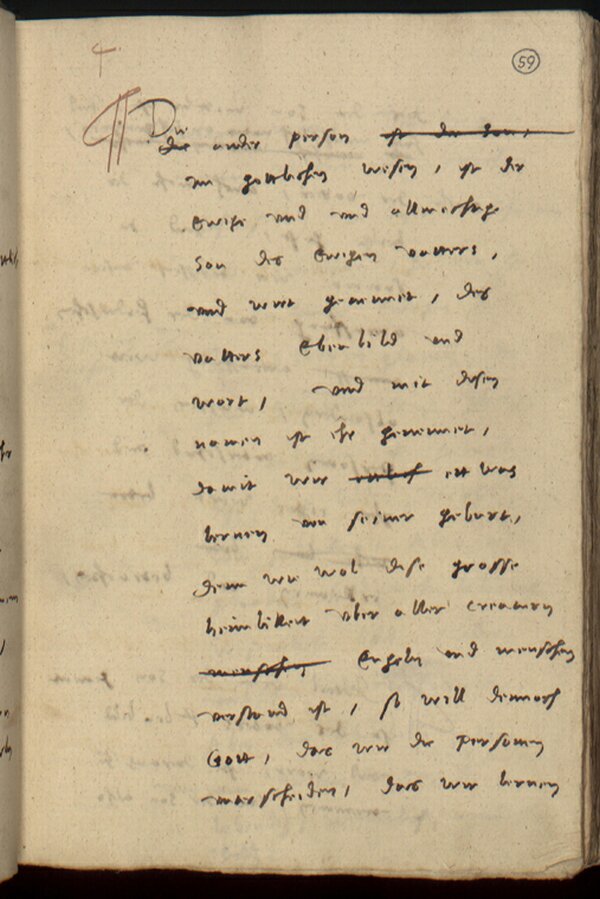 59
Die ander person ist der Son,
im gottlichen wesen, ist der
Ewige und und allmechtige
Son des Ewigen vatters,
und wirt genennet, des
vatters Ebenbild und
wort, und mit disen
namen ist ehr genennet,
damit wir ettwas
lernen von seiner geburt,
denn wie wol dise grosse
heimlikeit uber aller creaturn
menschen Engeln und menschen
verstand ist, so will dennoch
Gott, das wir die personen
unterscheiden, das wir lernen